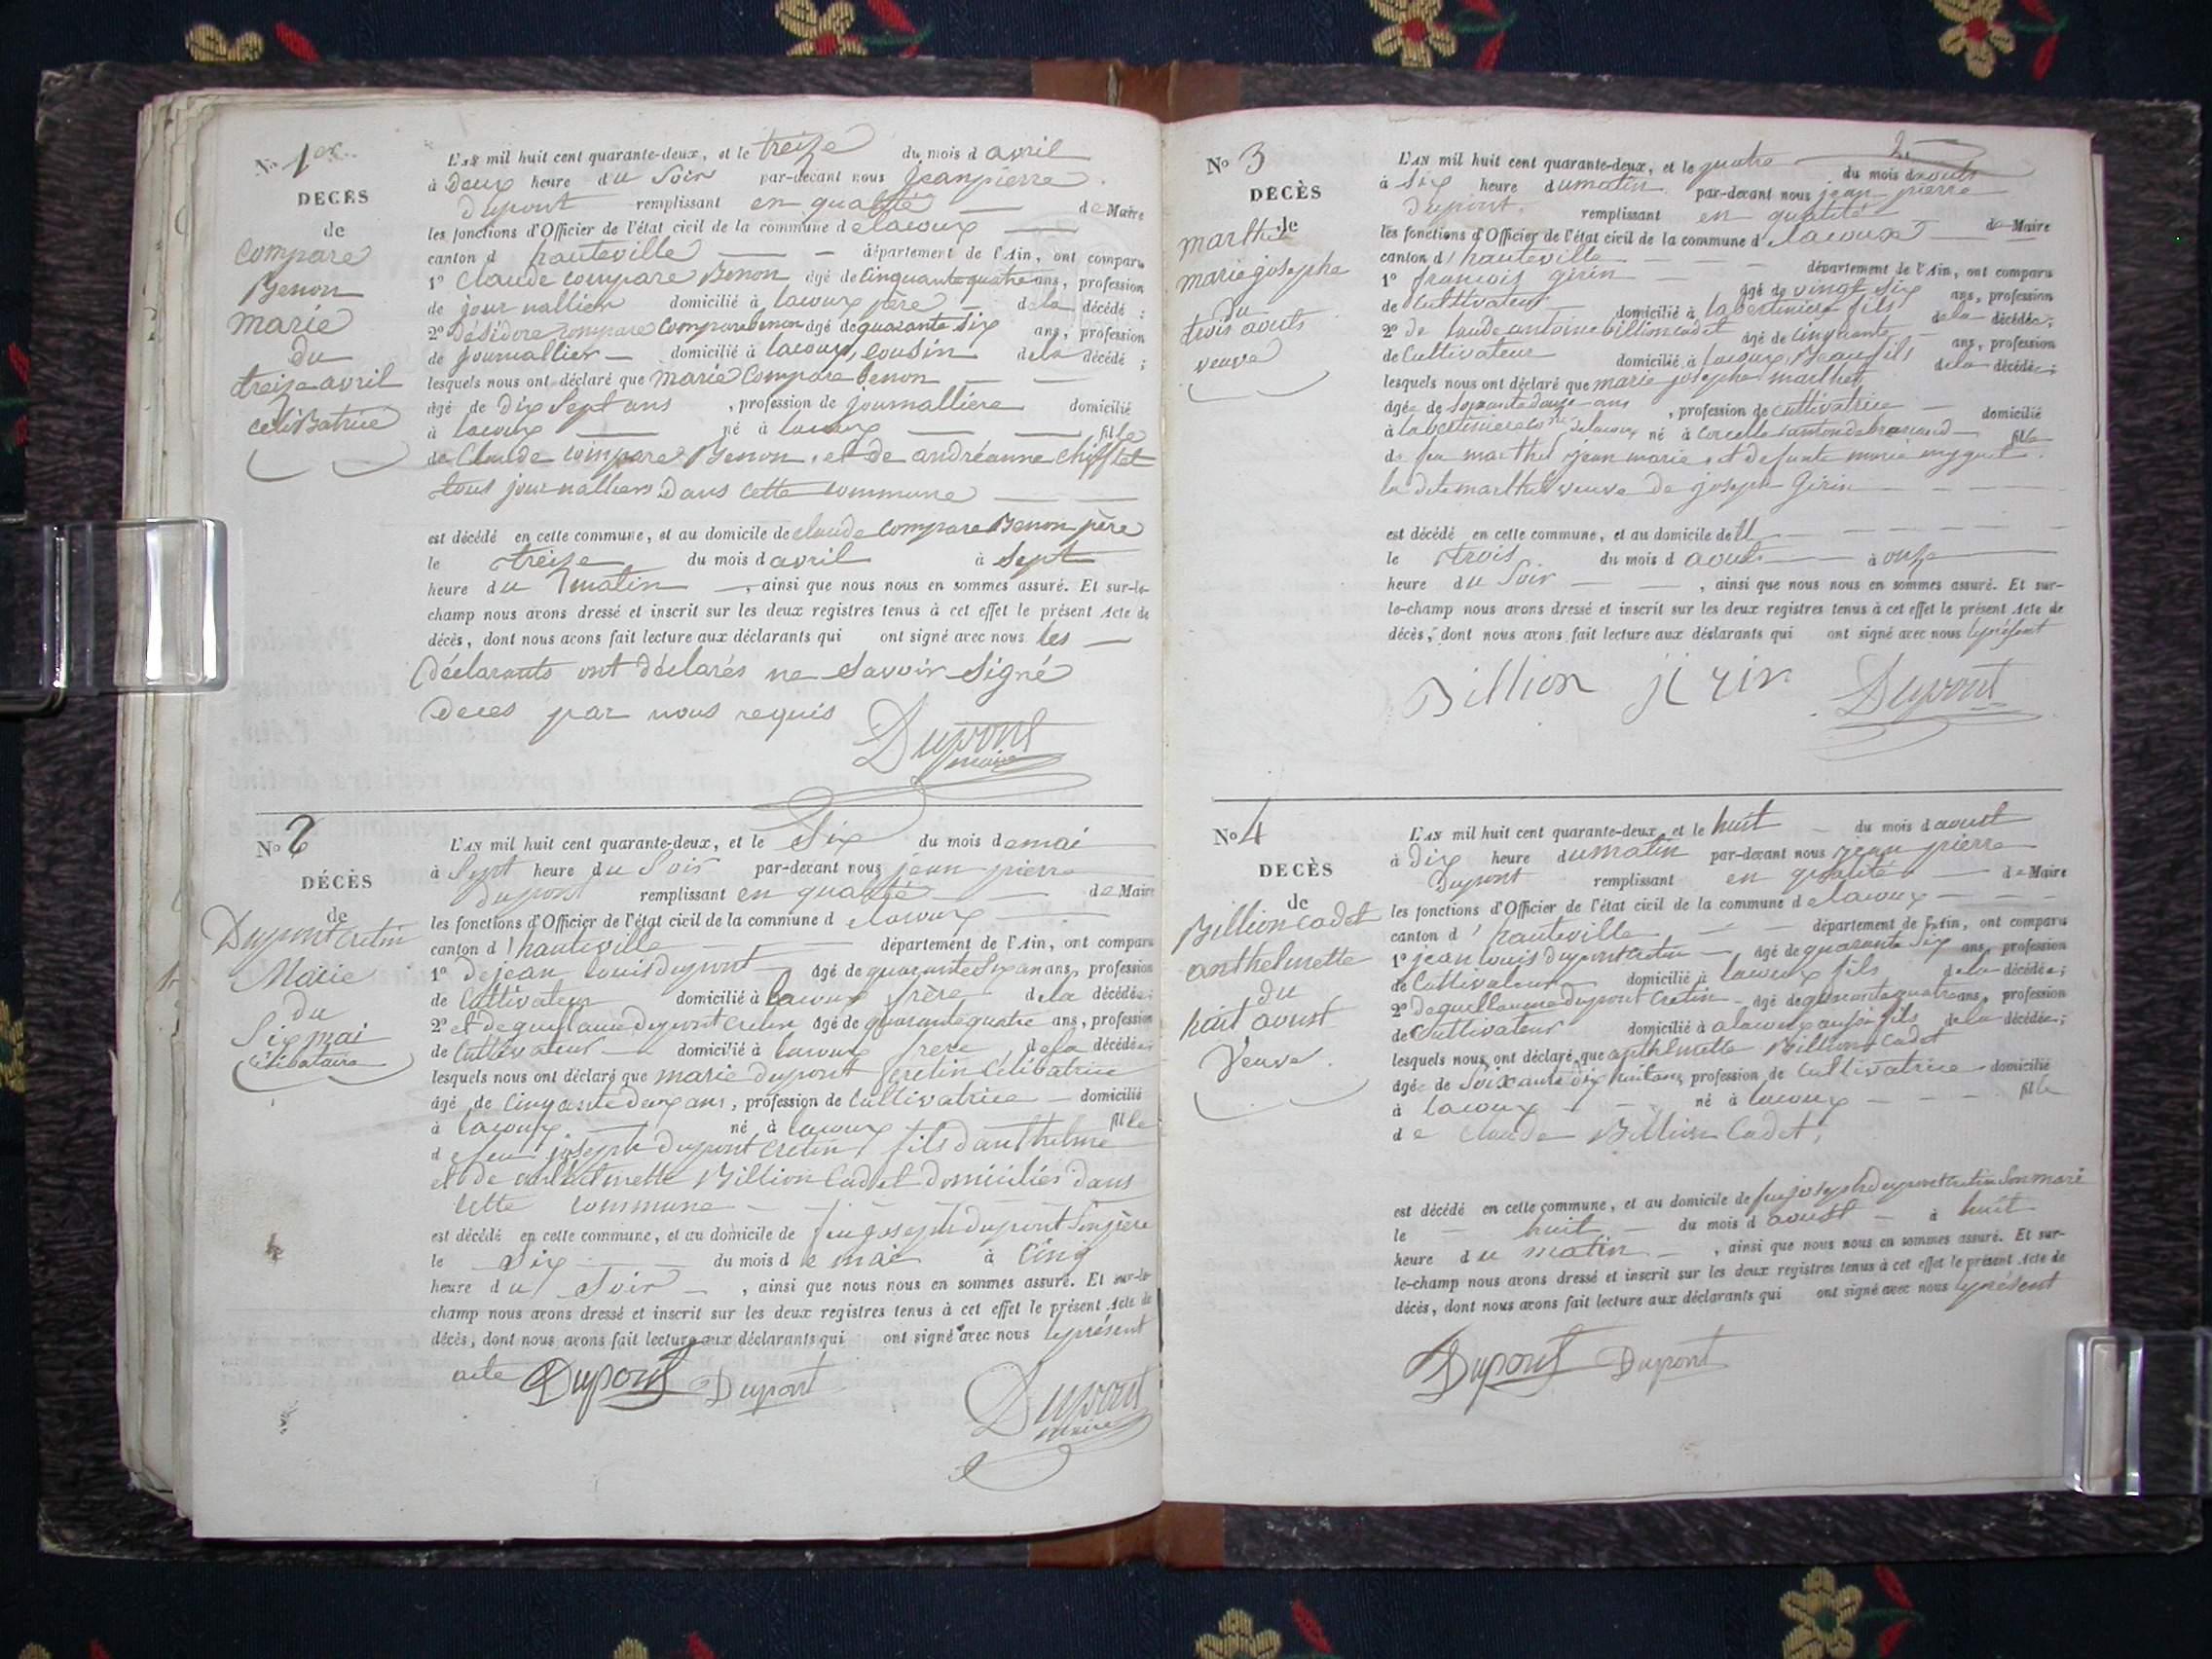 No 1er
DECÈS
de
Compare
Benon
Marie
du
treize avril
celibatrice
L'AN mil huit cent quarante-deux, et le treize du mois d avril
à Deux heure du Soir par-devant nous jeanpierre
Dupont remplissant en qualité de Maire
les fonctions d'Officier de l'état civil de la commune d elacoux
canton d hauteville département de l'Ain, ont comparu
1º Claude compare Benon âgé de Cinquante quatre ans, profession
de journallier domicilié à lacoux père dela décédé ;
2º Désidore compare Comparebenon âgé de quarante six ans, profession
de journallier domicilié à lacoux, cousin dela décédé ;
lesquels nous ont déclaré que marie Compare benon
âgé de Dix Sept ans , profession de journalliere domicilié
à lacoux né à lacoux fille
de Claude compare Benon, et de andréanne Chifflet
tous journalliers Dans cette commune
est décédé en cette commune, et au domicile de claude Compare Benon père
le treize du mois d avril à Sept
heure du matin , ainsi que nous nous en sommes assuré. Et sur-le-
champ nous avons dressé et inscrit sur les deux registres tenus à cet effet le présent Acte de
décès, dont nous avons fait lecture aux déclarants qui ont signé avec nous les
Déclarants ont déclarés ne Savoir Signé
Deces par nous requis
Dupont
maire
No 2
DÉCÈS
de
Dupont Cretin
Marie
du
Six mai
Célibataire
L'AN mil huit cent quarante-deux, et le Six du mois demai
à Sept heure du Soir par-devant nous jean pierre
Dupont remplissant en qualité de Maire
les fonctions d'Officier de l'état civil de la commune d elacoux
canton d'hauteville département de l'Ain, ont comparu
1º de jean louis dupont âgé de quarante ans, profession
de Cultivateur domicilié à lacoux frère dela décédée;
2º et de guillaume dupont cretin âgé de quarante quatre ans, profession
de Cultivateur domicilié à lacoux frere dela décédée;
lesquels nous ont déclaré que marie dupont cretin Célibatrice
âgé de Cinqante deux ans, profession de Cultivatrice domicilié
à lacoux né à lacoux fille
de feu joseph dupont cretin fils danthelme
et de anthelmette Billion Cadet domiciliés dans
Cette commune
est décédé en cette commune, et au domicile de feu joseph dupont Son père
le Six du mois d e mai à Cinq
heure du Soir , ainsi que nous nous en sommes assuré. Et sur-le-
champ nous avons dressé et inscrit sur les deux registres tenus à cet effet le présent Acte de
décès, dont nous avons fait lecture aux déclarants qui ont signé avec nous leprésent
acte Dupont Dupont
Dupont
maire
No 3
DÉCÈS
de
marthe
marie josephe
du
trois aouts
veuve
L'AN mil huit cent quarante-deux, et le quatre du mois daouts
à Six heure dumatin par-devant nous jean pierre
Dupont remplissant en qualité de Maire
les fonctions d'Officier de l'état civil de la commune d elacoux
canton d'hauteville département de l'Ain, ont comparu
1º francois girin âgé de vingt six ans, profession
de Cultivateur domicilié à fils dela décédée;
2º de Claude antoine billion cadet âgé de Cinquante ans, profession
de Cultivateur domicilié à lacoux, Beaufils dela décédé;
lesquels nous ont déclaré que marie josephe marthe
âgée de Soixante douze ans , profession de cultivatrice domicilié
à né à corcelle canton de fille
de feu marthe jean marie, et defunte marie
la dite marthe veuve de joseph Girin
est décédé en cette commune, et au domicile de
le trois du mois d aout à onze
heure du Soir , ainsi que nous nous en sommes assuré. Et sur-
le-champ nous avons dressé et inscrit sur les deux registres tenus à cet effet le présent Acte de
décès, dont nous avons fait lecture aux déclarants qui ont signé avec nous leprésent
Billion jirin Dupont
No 4
DECÈS
de
Billion Cadet
anthelmette
du
huit aoust
Veuve
L'AN mil huit cent quarante-deux, et le huit du mois d aoust
à Dix heure dumatin par-devant nous jean pierre
Dupont remplissant en qualité de Maire
les fonctions d'Officier de l'état civil de la commune d elacoux
canton d' hauteville département de l'Ain, ont comparu
1º jean louis dupont cretin âgé de quarante six ans, profession
de Cultivateur domicilié à lacoux fils dela décédée;
2º de guillaume dupont Cretin âgé de quarante quatre ans, profession
de Cultivateur domicilié à alacoux aussi fils dela décédée;
lesquels nous ont déclaré que anthelmette Billion Cadet
âgée de Soixante dix huit ans, profession de Cultivatrice domicilié
à lacoux né à lacoux fille
d e Claude Billion Cadet,
est décédé en cette commune, et au domicile de feu joseph dupont cretin Son mari
le huit du mois d aoust à huit
heure du matin , ainsi que nous nous en sommes assuré. Et sur-
le-champ nous avons dressé et inscrit sur les deux registres tenus à cet effet le présent Acte de
décès, dont nous avons fait lecture aux déclarants qui ont signé avec nous leprésent
Dupont Dupont